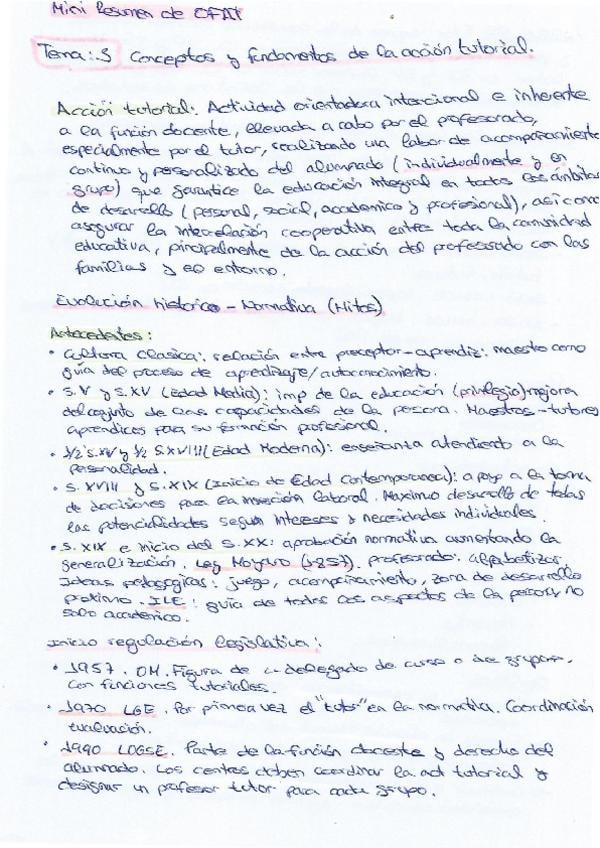 Mini Resumen de OFAT
Tema: 3 Conceptos y fundamentos de la acción tutorial.
Acción tutorial: Actividad orientadora intencional e inherente
a la función docente, llevada a cabo por el profesorado,
especialmente por el tutor, realizando una labor de acompañamiento
continuo y personalizado del alumnado (individualmente y en
grupo) que garantice la educación integral en todos los ámbitos
de desarrollo (personal, social, académico y profesional), así como
asegurar la interrelación cooperativa entre toda la comunidad
educativa, principalmente de la acción del profesorado con las
familias y el entorno.
Evolución histórico - Normativa (Hitos)
Antecedentes:
• Cultura Clasica: relación entre preceptor-aprendiz: maestro como
guía del proceso de aprendizaje/autoconocimiento.
• S.V y S.XV (Edad Media): imp de la educación (privilegio) mejora
del conjunto de las capacidades de la persona. Maestros-tutores
aprendices para su formación profesional.
• 1/2 S.XV y 1/2 S.XVIII (Edad Moderna): enseñanza atendiendo a la
personalidad.
• S. XVIII y S. XIX (Inicio de Edad Contemporanea): apoyo a la toma
de decisiones para la inserción laboral. Maximo desarrollo de todas
las potencialidades segun intereses y necesidades individuales.
• S. XIX e inicio del S. XX: aprobación normativa aumentando la
generalización. Ley Moyano (1857). profesorado: alfabetizar.
Ideas pedagógicas: juego, acompañamiento, zona de desarrollo
proximo. ILE: guía de todos los aspectos de la persona no
solo académico.
Inicio regulación legislativa:
• 1957. OM. Figura de delegado de curso o de grupo.
con funciones tutoriales.
• 1970 LGE. Por primera vez el "tutor" en la normativa. Coordinación
evaluación.
• 1990 LOGSE. Parte de la función docente y derecho del
alumnado. Los centros deben coordinar la act tutorial y
designar un profesor tutor para cada grupo.